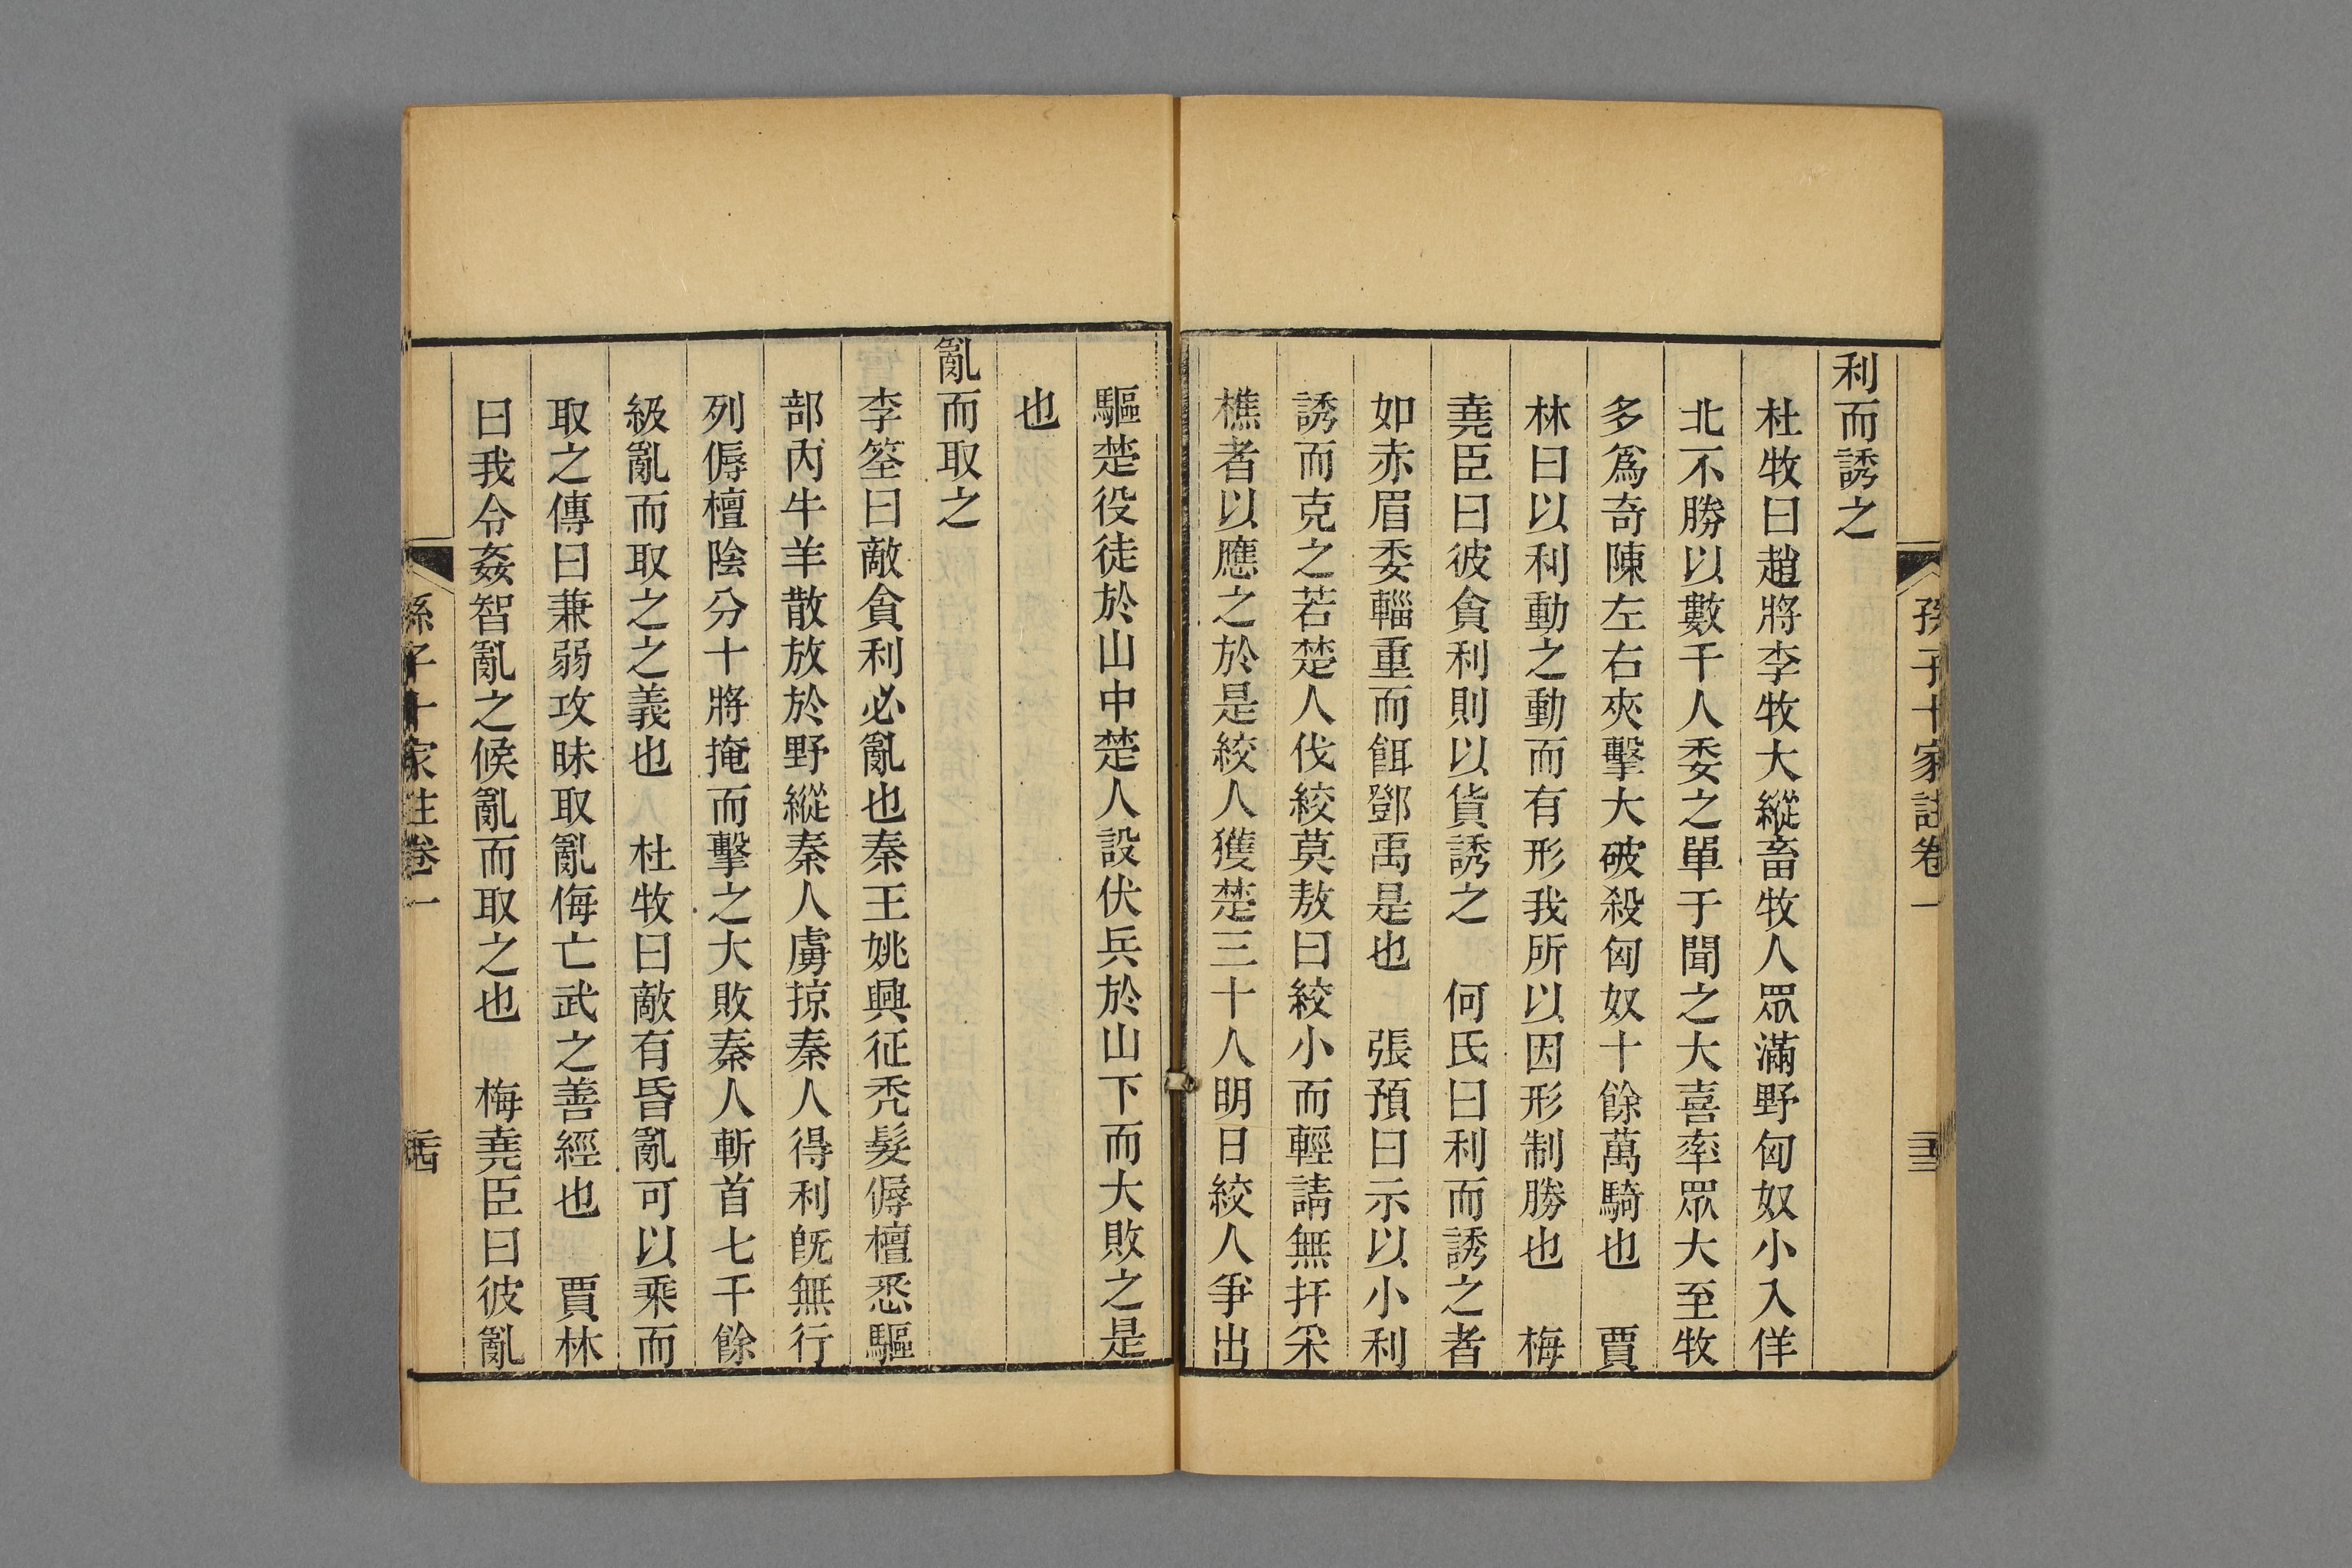 孫子十家註卷一
三十三
利而誘之
杜牧曰趙將李牧大縱畜牧人眾滿野匈奴小入佯
北不勝以數千人委之單于聞之大喜率眾大至牧
多爲奇陳左右夾擊大破殺匈奴十餘萬騎也 賈
林曰以利動之動而有形我所以因形制勝也 梅
堯臣曰彼貪利則以貨誘之 何氏曰利而誘之者
如赤眉委輜重而餌鄧禹是也 張預曰示以小利
誘而克之若楚人伐絞莫敖曰絞小而輕請無扞采
樵者以應之於是絞人獲楚三十人明日絞人爭出
驅楚役徒於山中楚人設伏兵於山下而大敗之是
也
亂而取之
李筌曰敵貪利必亂也秦王姚興征禿髮傉檀悉驅
部內牛羊散放於野縱秦人虜掠秦人得利旣無行
列傉檀陰分十將掩而擊之大敗秦人斬首七千餘
級亂而取之之義也 杜牧曰敵有昏亂可以乘而
取之傳曰兼弱攻昧取亂侮亡武之善經也 賈林
曰我令姦智亂之候亂而取之也 梅堯臣曰彼亂
孫子十家註卷一